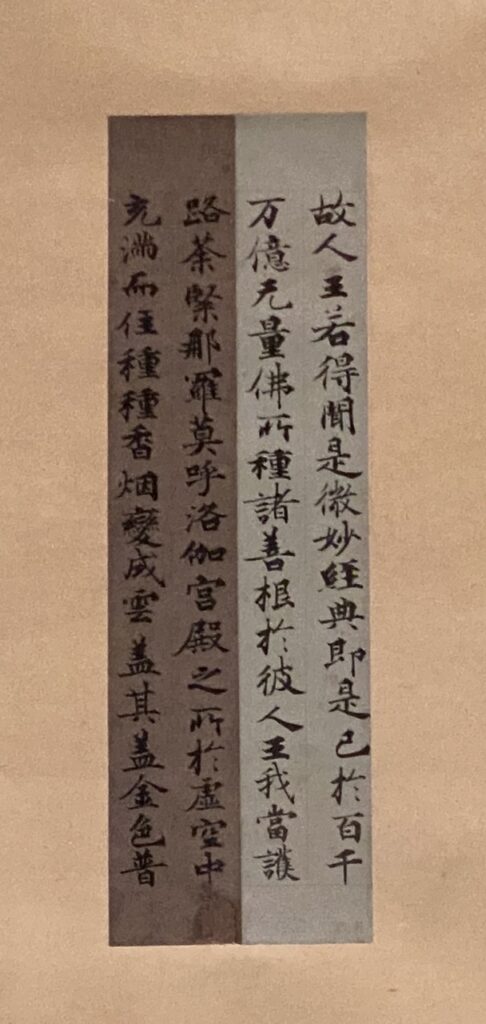 故人王若得聞是微妙經典即是已於百千
万億无量佛所種諸善根於彼人王我當護
路荼緊那羅莫呼洛伽宮殿之所於虛空中
充滿而住種種香烟變成雲盖其盖金色普